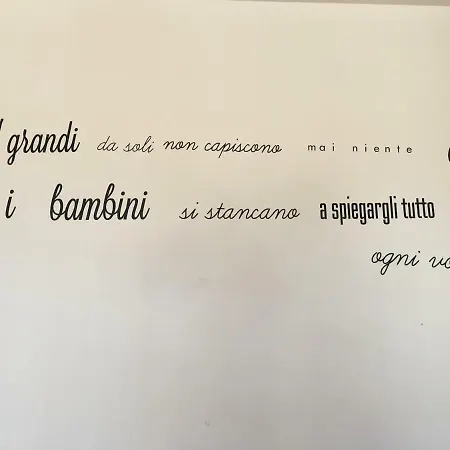 grandi da soli non capiscono mai niente
i bambini si stancano a spiegargli tutto
ogni